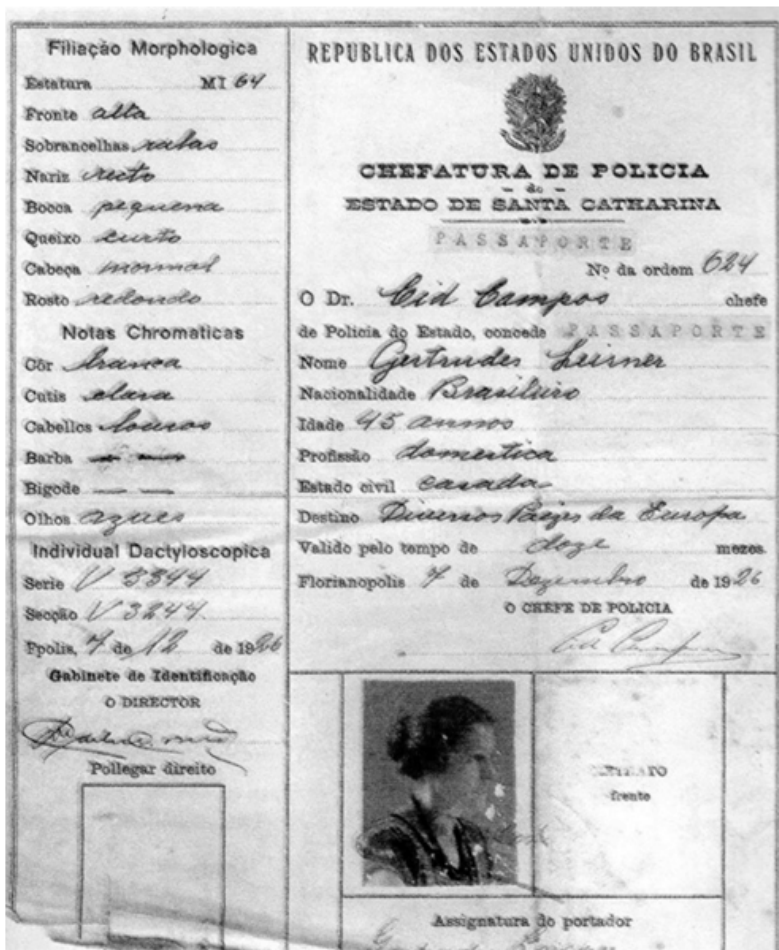 Filiação Morphologica
Estatura MI 64
Fronte alta
Sobrancelhas ralas
Nariz recto
Bocca pequena
Queixo curto
Cabeça normal
Rosto redondo
Notas Chromaticas
Côr branca
Cutis clara
Cabellos louros
Barba — —
Bigode — —
Olhos azues
Individual Dactyloscopica
Serie V 3344
Secção V 3244
Fpolis, 7 de 12 de 1926
Gabinete de Identificação
O DIRECTOR
Pollegar direito
REPUBLICA DOS ESTADOS UNIDOS DO BRASIL
CHEFATURA DE POLICIA
- do -
ESTADO DE SANTA CATHARINA
PASSAPORTE
Nº da ordem 624
O Dr. Cid Campos chefe
de Policia do Estado, concede PASSAPORTE
Nome Gertrudes
Nacionalidade Brasileiro
Idade 45 annos
Profissão domestica
Estado civil casada
Destino Diversos Paizes da Europa
Valido pelo tempo de doze mezes
Florianopolis 7 de Dezembro de 1926
O CHEFE DE POLICIA
Cid Campos
RETRATO
frente
Assignatura do portador